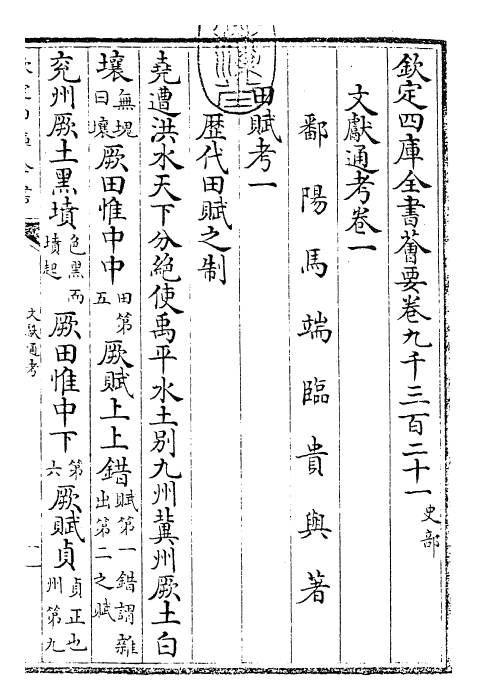 欽定四庫全書薈要卷九千三百二十一史部
文獻通考卷一
鄱陽馬端臨貴與著
田賦考一
歷代田賦之制
堯遭洪水天下分絶使禹平水土别九州冀州厥土白
壤無塊曰壤厥田惟中中田第五厥賦上上錯賦第一錯謂雜出第二之賦
兖州厥土黑墳色黑而墳起厥田惟中下第六厥賦貞貞正也州第九
文獻通考